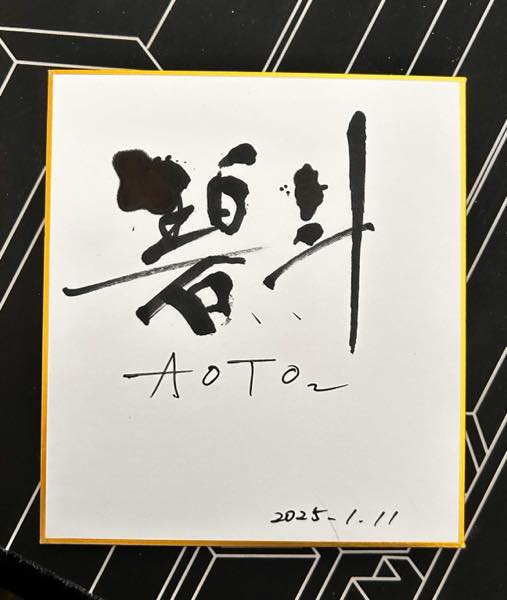 碧斗
AOTO２
2025-1.11